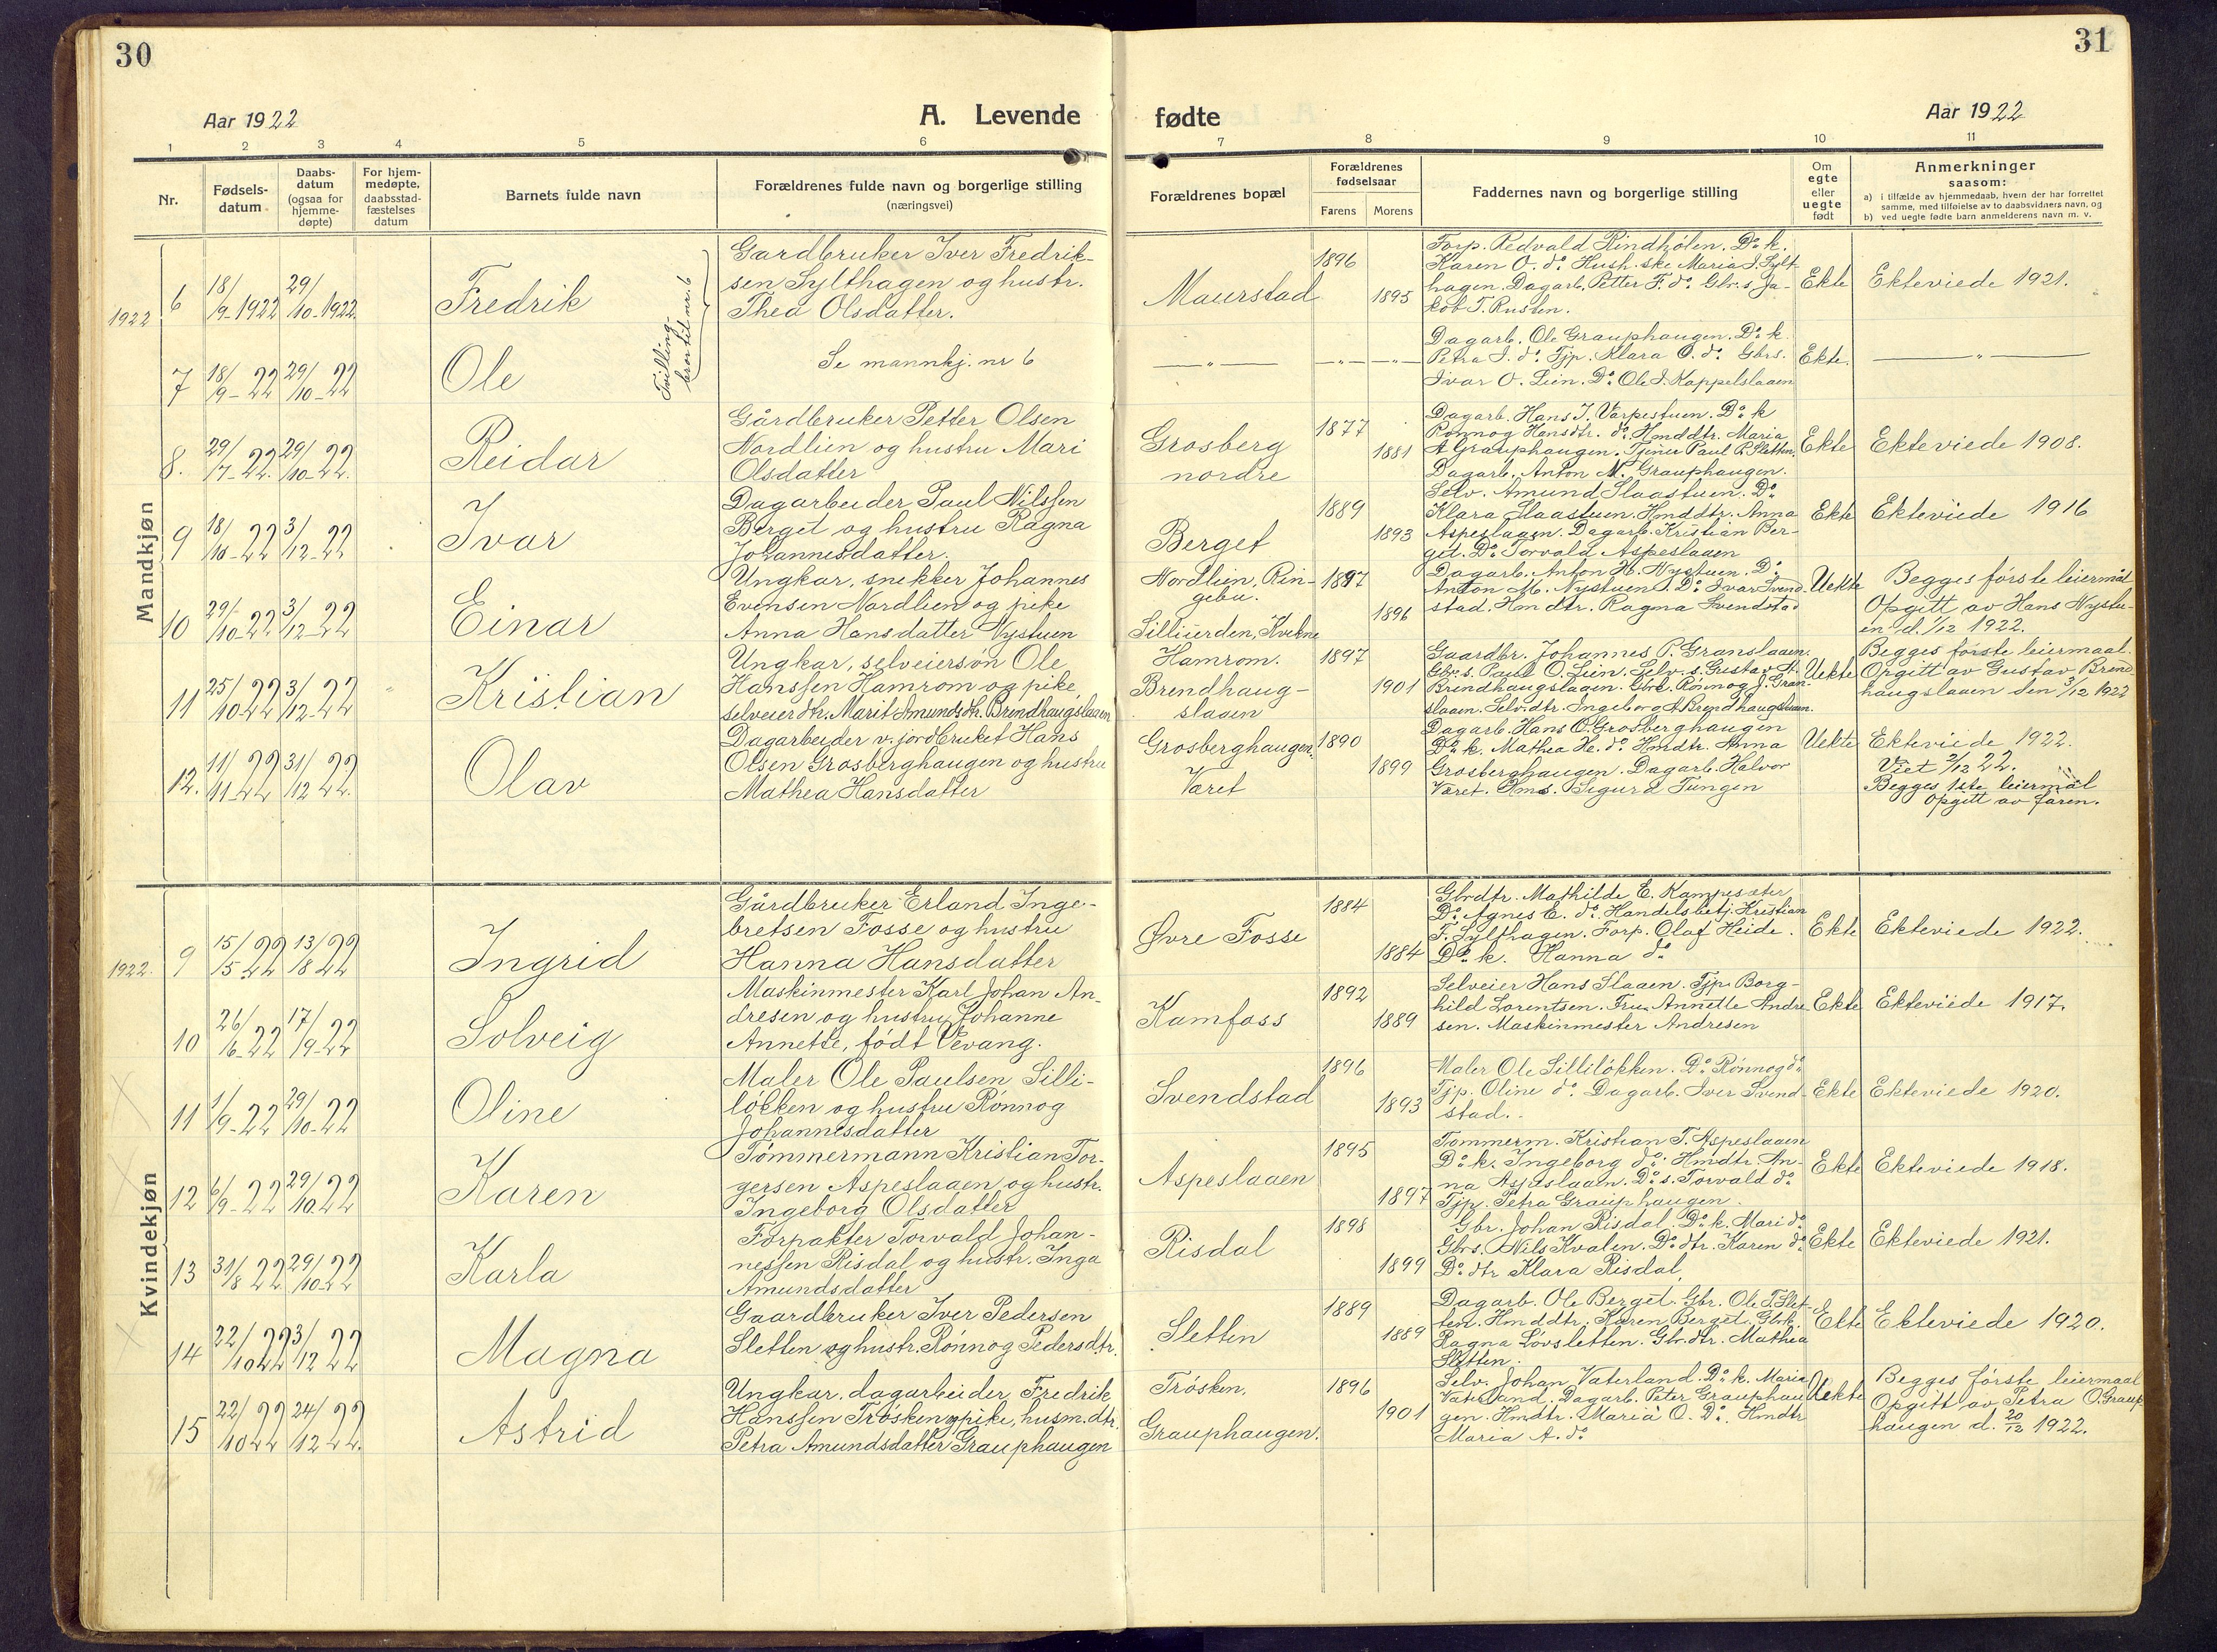 30
31
Aar 1922
A. Levende
fødte
Aar 1922
1 2 3 4 5 6 7 8 9 10 11
Nr.
Fødsels-
datum
Daabs-
datum
(ogsaa for
hjemme-
døpte)
For hjem-
medøpte,
daabsstad-
fæstelses
datum
Barnets fulde navn
Forældrenes fulde navn og borgerlige stilling
(næringsvei)
Forældrenes bopæl
Forældrenes
fødselsaar
Farens Morens
Faddernes navn og borgerlige stilling
Om
egte
eller
uegte
født
Anmerkninger
saasom:
a) i tilfælde av hjemmedaab, hvem der har forrettet
samme, med tilføielse av to daabsvidners navn, og
b) ved uegte fødte barn anmelderens navn m. v.
Mandkjøn
1922
6
18/9-1922
29/10-1922.
Fredrik
Tvilling-
bror til nr. 6
Gardbruker Iver Fredrik-
sen Sylthagen og hustr.
Thea Olsdatter.
Maurstad
1896
1895
Forp. Redvald Rindhølen. Do k.
Karen O. do. Hush.ske Maria I. Sylt-
hagen. Dagarb. Petter F. do. Gbr.s. Ja-
kob T. Rusten.
Ekte
Ekteviede 1921.
7
18/9-22
29/10-22
Ole
Se mannkj. nr 6
— " —
— " — " —
Dagarb. Ole Grauphaugen. Do k.
Petra I. do. Tjp. Klara O. do. Gbrs.
Ivar O. Lien. Do. Ole I. Kappelslaaen
Ekte.
— " —
8.
29/7-22.
29/10-22.
Reidar
Gårdbruker Petter Olsen
Nordlien og hustru Mari
Olsdatter
Grosberg
nordre
1877
1881
Dagarb. Hans J. Varpestuen. Do k
Rønnog Hansdtr. do. Hmddtr. Maria
A Grauphaugen. Tjener Paul P. Sletten.
Dagarb. Anton M. Grauphaugen.
Ekte
Ekteviede 1908.
9
18/10-22
3/12-22
Ivar
Dagarbeider Paul Nilssen
Berget og hustru Ragna
Johannesdatter.
Berget
1889
1893
Selv. Amund Slaastuen. Do
Klara Slaastuen. Hmddtr. Anna
Aspeslaaen. Dagarb. Kristian Ber-
get. Do. Torvald Aspeslaaen
Ekte
Ekteviede 1916
10
29/10-22
3/12-22
Einar
Ungkar, snekker Johannes
Evensen Nordlien og pike
Anna Hansdatter Nystuen
Nordlien, Rin-
gebu.
Silliurden, Kvikne
1897
1896
Dagarb. Anton H. Nystuen. Do
Anton M. Nystuen. Do. Ivar Svend-
stad. Hm dtr. Ragna Svendstad
Uekte
Begges første leiermål
Opgitt av Hans Nystu-
en d. 1/12 1922.
11
25/10-22
3/12-22
Kristian
Ungkar, selveiersøn Ole
Hanssen Hamrom og pike
selveierdtr. Marit Amundsdtr. Brendhaugslaaen
Hamrom.
Brendhaug-
slaaen
1897
1901
Gaardbr. Johannes P. Granslaaen.
Gbr.s. Paul O. Lien. Selv.s. Gustav A.
Brendhaugslaaen. Gbrk. Rønnog J. Gran-
slaaen. Selv.dtr. Ingeborg A Brendhaugslaaen.
Uekte
Begges første leiermaal.
Opgitt av Gustav Brend-
haugslaaen den 3/12 1922
12.
11/11-22
31/12 22.
Olav
Dagarbeider v. jordbruket Hans
Olsen Grosberghaugen og hustru
Mathea Hansdatter
Grosberghaugen.
Været
1890
1899
Dagarb. Hans O. Grosberghaugen
Do k. Mathea H. do Hmdtr. Anna
Grosberghaugen. Dagarb. Halvor
Været. Sigurd Tungen
Uekte
Ekteviede 1922.
Viet 2/12 22.
Begges 1ste leiermål
Opgitt av faren.
Kvindekjøn
1922.
9
15/5 22
13/8 22
Ingrid
Gårdbruker Erland Inge-
bretsen Fosse og hustru
Hanna Hansdatter
Øvre Fosse
1884
1884
Gbrdtr. Mathilde E. Kampesæter
Do. Agnes E. do. Handelsbetj. Kristian
T. Sylthagen. Forp. Olaf Heide.
Do. k. Hanna do
Ekte
Ekteviede 1922.
10
26/6-22
17/9-22
Solveig
Maskinmester Karl Johan An-
dresen og hustru Johanne
Annette, født Vevang.
Kamfoss
1892
1889
Selveier Hans Slaaen. Tjp. Borg-
hild Lorentsen. Fru Annette Andre-
sen. Maskinmester Andresen
Ekte
Ekteviede 1917.
11
1/9-22
29/10-22
Oline
Maler Ole Paulsen Silli-
løkken og hustru Rønnog
Johannesdatter
Svendstad
1896
1893
Maler Ole Silliløkken. Do. Rønnog do
Tjp. Oline do. Dagarb. Iver Svend-
stad.
Ekte
Ekteviede 1920.
12
6/9-22
29/10.22
Karen
Tømmermann Kristian Tor-
gersen Aspeslaaen og hustr.
Ingeborg Olsdatter
Aspeslaaen
1895
1897
Tømmerm. Kristian T. Aspeslaaen
Do k. Ingeborg do. Hmdtr. An-
na Aspeslaaen. Do s. Torvald do
Tjp. Petra Grauphaugen.
Ekte
Ekteviede 1918.
13
31/8 22
29/10-22
Karla
Forpakter Torvald Johan-
nessen Risdal og hustr. Inga
Amundsdatter
Risdal
1898
1899
Gbr. Johan Risdal. Do. k. Mari do
Gbrs. Nils Kvalen. Do. dtr. Karen do.
Do. dtr Klara Risdal.
Ekte
Ekteviede 1921.
14
22/10 22
3/12 22
Magna
Gaardbruker Iver Pedersen
Sletten og hustr. Rønnog Pedersdtr.
Sletten
1889
1889
Dagarb. Ole Berget. Gbr. Ole T. Slet-
ten. Hmddtr. Karen Berget. Gbrk.
Ragna Løvsletten. Gbr.dtr. Mathea
Sletten.
Ekte
Ekteviede 1920.
15
22/10 22
24/12 22.
Astrid
Ungkar, dagarbeider Fredrik
Hanssen Trøsken og pike, husm.dtr.
Petra Amundsdatter Grauphaugen
Trøsken.
Grauphaugen.
1896
1901
Selv. Johan Vaterland. Do. k. Maria
Vaterland. Dagarb. Peter Grauphau-
gen. Hmdtr. Maria O. Do. Hmdtr
Maria A. do
Uekte
Begges første leiermaal
Opgitt av Petra O. Graup
haugen d. 20/12 1922.